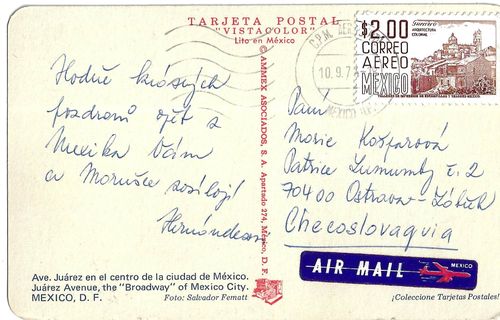 TARJETA POSTAL
"VISTACOLOR"
Lito en México
Hodně krásných
pozdravů opět z
Mexika Vám
a Marušce posílají
Hernándesovi
© AMMEX ASOCIADOS, S. A. Apartado 274, México, D. F.
$2.00
CORREO
AEREO
MEXICO
Guerrero
ARQUITECTURA
COLONIAL
10.9.7
Paní
Marie Kašparová
Patrice Lumumby č. 2
70400 Ostrava - Zábřeh
Checoslovaquia
AIR MAIL
MEXICO
Ave. Juárez en el centro de la ciudad de México.
Juárez Avenue, the "Broadway" of Mexico City.
MEXICO, D. F.
Foto: Salvador Fematt
¡Coleccione Tarjetas Postales!